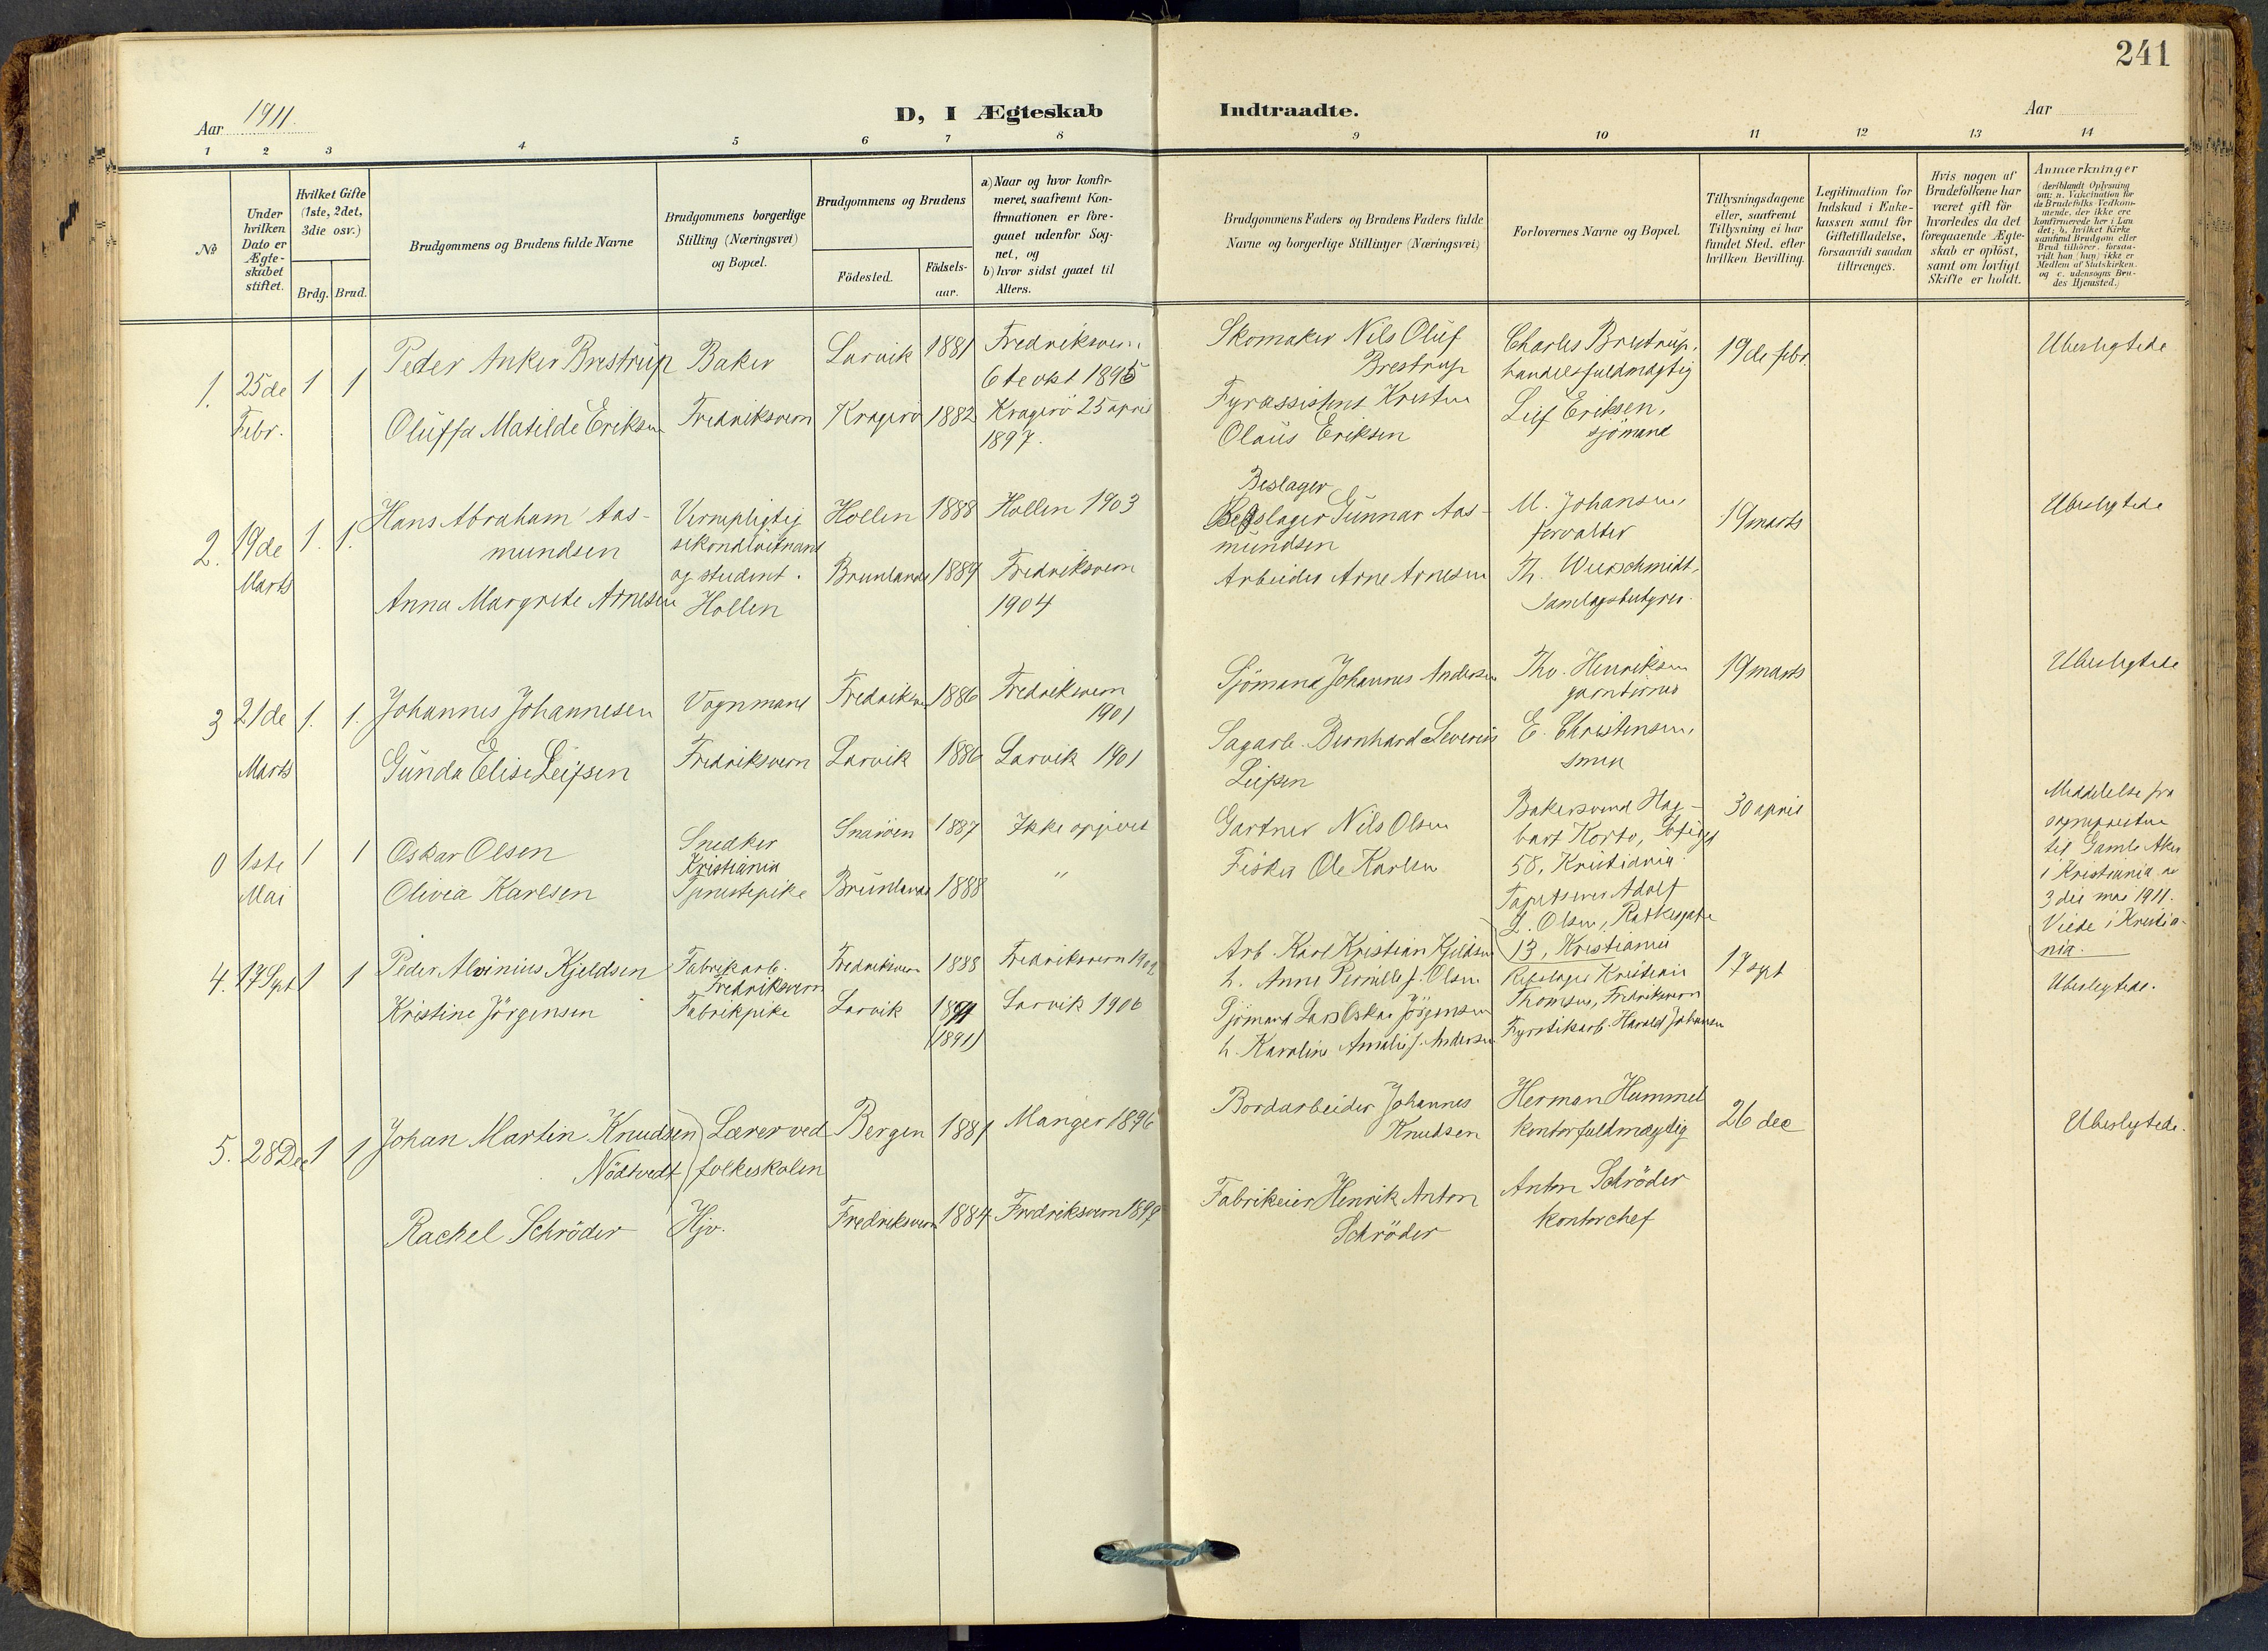 241
Aar 1911.
D, I Ægteskab Indtraadte.
Aar
1 2 3 4 5 6 7 8 9 10 11 12 13 14
No
Under
hvilken
Dato er
Ægte-
skabet
stiftet.
Hvilket Gifte
(1ste, 2det,
3die osv.)
Brdg. Brud.
Brudgommens og Brudens fulde Navne
Brudgommens borgerlige
Stilling (Næringsvei)
og Bopæl.
Brudgommens og Brudens
Födested.
Födsels-
aar.
a) Naar og hvor konfir-
meret, saafremt Kon-
firmationen er fore-
gaaet udenfor Sog-
net, og
b) hvor sidst gaaet til
Alters.
Brudgommens Faders og Brudens Faders fulde
Navne og borgerlige Stillinger (Næringsvei)
Forlovernes Navne og Bopæl.
Tillysningsdagene
eller, saafremt
Tillysning ei har
fundet Sted, efter
hvilken Bevilling.
Legitimation for
Indskud i Enke-
kassen samt for
Giftetilladelse,
forsaavidt saadan
tiltrænges.
Hvis nogen af
Brudefolkene har
været gift för
hvorledes da det
foregaaende Ægte-
skab er oplöst,
samt om lovligt
Skifte er holdt.
Anmærkninger
(deriblandt Oplysning
om: a. Vakcination for
de Brudefolks Vedkom-
mende, der ikke ere
konfirmerede her i Lan
det; b. hvilket Kirke
samfund Brudgom eller
Brud tilhörer, forsaa-
vidt han (hun) ikke er
Medlem af Statskirken.
og c. udensogns Bru-
des Hjemsted.)
1. 25de Febr. 1 1
Peder Anker Brestrup
Baker
Larvik 1881
Fredriksvern
6te okt 1895
Skomaker Nils Oluf
Brestrup
Charles Brestrup,
handelsfuldmægtig
19de febr.
Ubeslegtede
Oluffa Matilde Eriksen
Fredriksvern
Kragerö 1882
Kragerö 25 april
1897.
Fyrassistent Kristen
Olaus Eriksen
Leif Eriksen,
sjömand
2. 19de Marts 1. 1.
Hans Abraham Aas-
mundsen
Vernepligtig
sekondlöitnant
og student.
Hollen
Hollen 1888
Hollen 1903
Beslager
slager Gunnar Aas-
mundsen
M. Johansen,
forvalter
19 marts
Ubeslegtede
Anna Margrete Arnesen
Brunlanes 1889
Fredriksvern
1904
Arbeider Arne Arnesen
Th.
3 21de Marts 1. 1.
Johannes Johannesen
Vognmand
Fredriksvern 1886
Fredriksvern
1901
Sjömand Johannes Andersen
Thv. Henriksen
19 marts
Ubeslegtede
Gunda Elise Leifsen
Fredriksvern
Larvik 1886
Larvik 1901
Sagarb. Bernhard Severin
Leifsen
E. Christensen,
smed
0 1ste Mai 1 1
Oskar Olsen
Snedker
Kristiania
1887
Ikke opgivet
Gartner Nils Olsen
Bakersvend Hag-
bart Korto,
58, Kristiania.
30 april
Meddelelse fra
sognepresten
til Gamle Aker
i Kristiania av
3die mai 1911.
Viede i Kristia-
nia.
Olivia Karlsen
Tjenestepike
Brunlanes 1888
"
Fisker Ole Karlsen
Tapetserer Adolf
L. Olsen, Ratkesgate
13, Kristiania
4. 17 Sept 1 1
Peder Alvinius Kjeldsen
Fabrikarb.
Fredriksvern
Fredriksvern 1888
Fredriksvern
Arb. Karl Kristian Kjeldsen
h. Anne Pernille f. Olsen
Rebslager Kristian
Thomsen, Fredriksvern
17 sept
Ubeslegtede.
Kristine Jörgensen
Fabrikpike
Larvik
(1891)
Larvik 1906
Sjömand Lars Oskar Jörgensen
h. Karoline Amalie f. Andersen
Fyrstikarb. Harald Johansen
5. 28 Dec 1 1
Johan Martin Knudsen
Nödtvedt
Lærer ved
folkeskolen
Bergen 1881
Manger 1896
Bordarbeider Johannes
Knudsen
Herman Hummel
kontorfuldmægtig
26 dec
Ubeslegtede.
Rachel Schröder
Hjv.
Fredriksvern 1884
Fredriksvern 1899
Fabrikeier Henrik Anton
Schröder
Anton Schröder
kontorchef